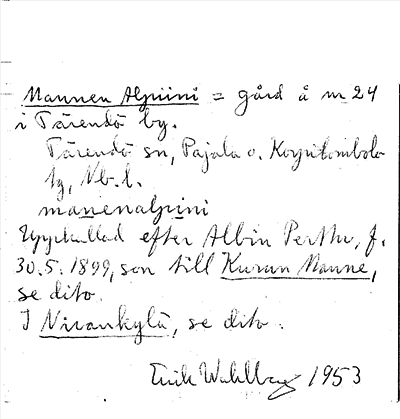 Mannen Alpiini = gård å nr 24
i Tärendö by.
Tärendö sn, Pajala o. Korpilombolo
tg, Nb. l.
manenalpini
Uppkallad efter Albin Perttu, f.
30.5.1899, son till Kurun Manne,
se dito.
I Nivankylä, se dito.
Erik Wahlberg 1953